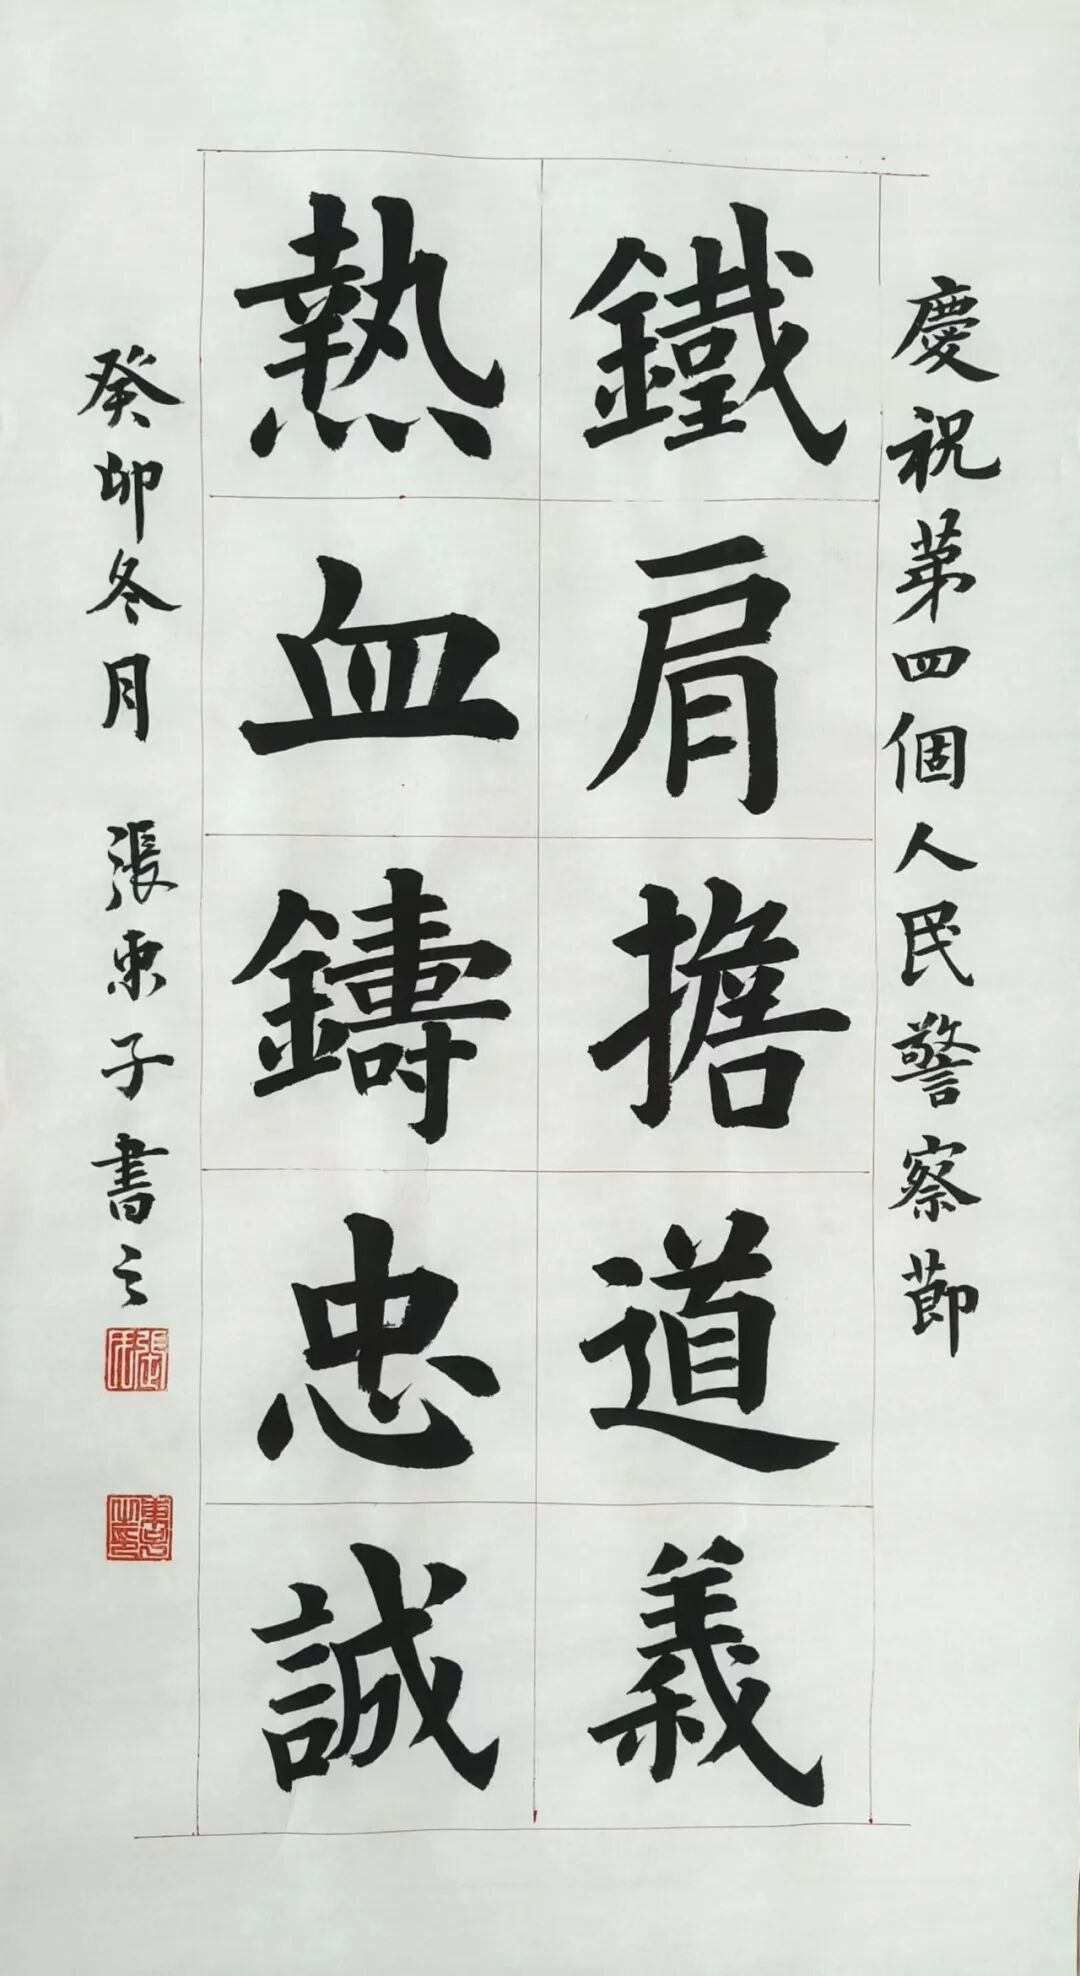 慶祝第四個人民警察節
鐵肩擔道義
熱血鑄忠誠
癸卯冬月 張東子書之